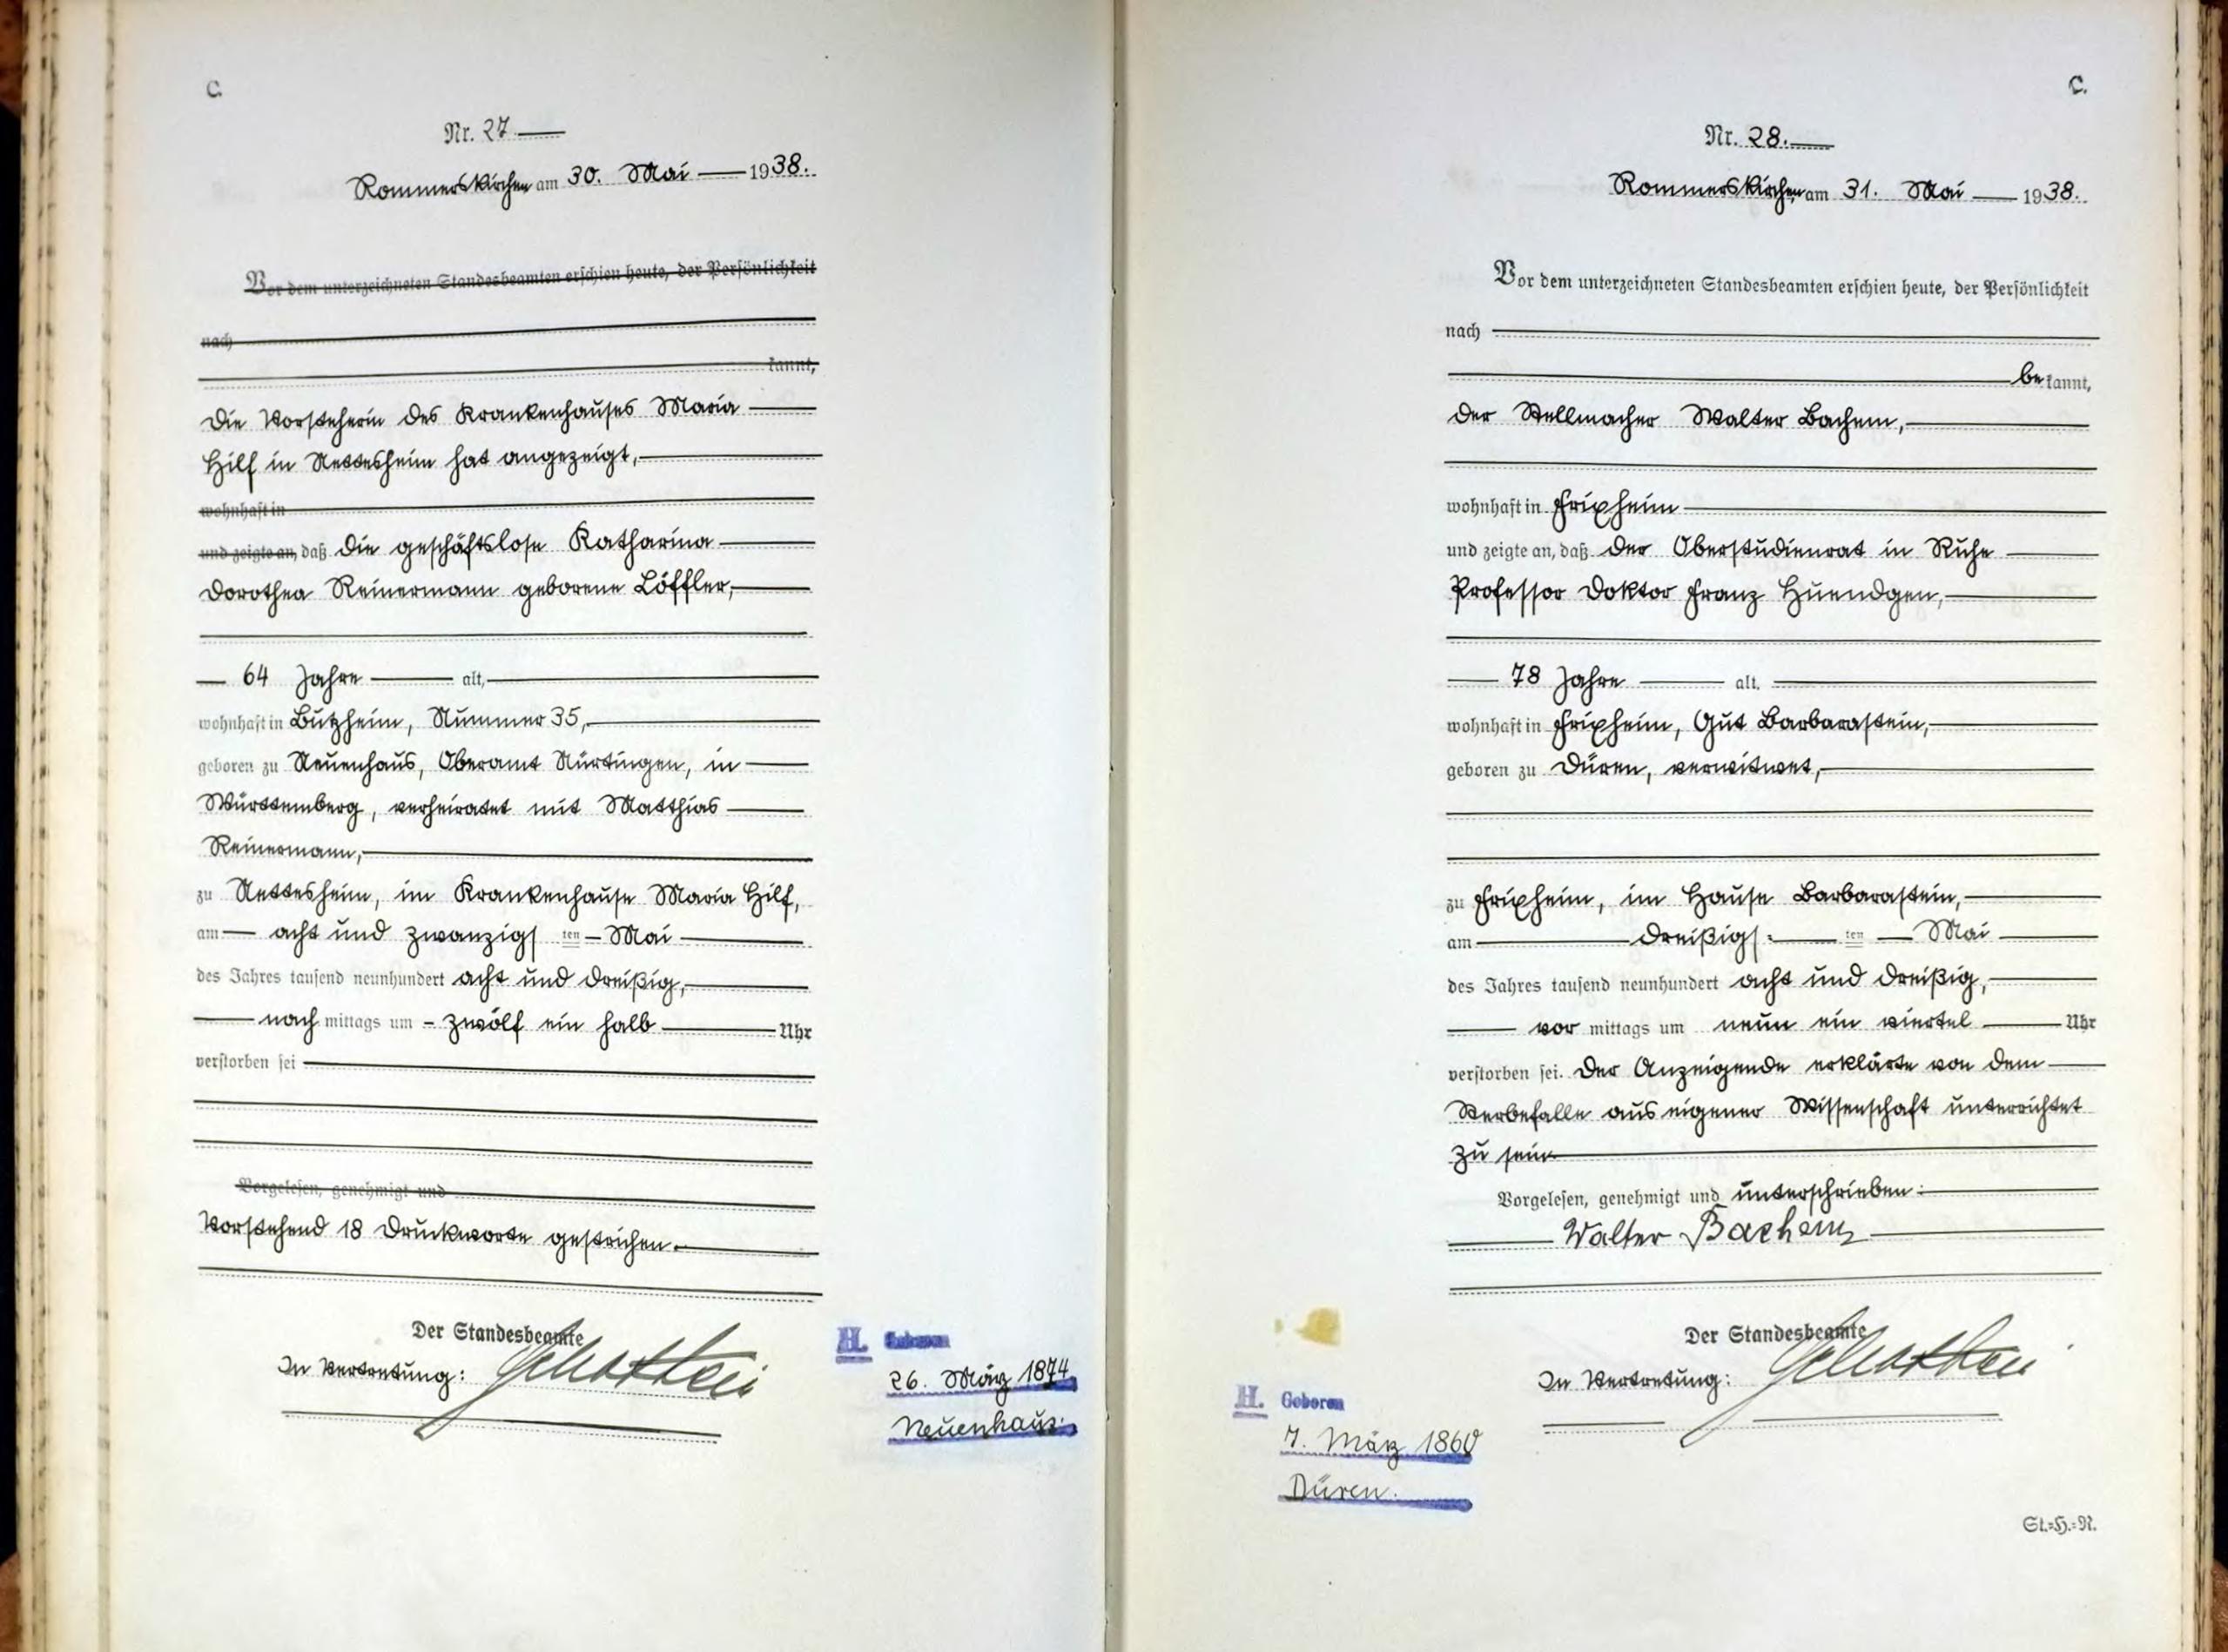 C.
Nr. 27
Rommerskirchen am 30. Mai 1938.
Vor dem unterzeichneten Standesbeamten erschien heute, der Persönlichkeit
nach
kannt,
Die Vorsteherin des Krankenhauses Maria
Hilf in Nettesheim hat angezeigt,
wohnhaft in
und zeigte an, daß die geschäftslose Katharina
Dorothea Reinermann geborene Löffler,
64 Jahre alt,
wohnhaft in Butzheim, Nummer 35,
geboren zu Neuenhaus, Oberamt Nürtingen, in
Württemberg, verheiratet mit Matthias
Reinermann,
zu Nettesheim, im Krankenhause Maria Hilf,
am acht und zwanzigsten Mai
des Jahres tausend neunhundert acht und dreißig,
nach mittags um zwölf ein halb Uhr
verstorben sei
Vorgelesen, genehmigt und
Vorstehend 18 Druckworte gestrichen.
Der Standesbeamte
In Vertretung:
H.
26. März 1874
Neuenhaus
C.
Nr. 28.
Rommerskirchen am 31. Mai 1938.
Vor dem unterzeichneten Standesbeamten erschien heute, der Persönlichkeit
nach
bekannt,
der Stellmacher Walter Bachem,
wohnhaft in Frixheim
und zeigte an, daß der Oberstudienrat in Ruhe
Professor Doktor Franz Huendgen,
78 Jahre alt,
wohnhaft in Frixheim, Gut Barbarastein,
geboren zu Düren, verwitwet,
zu Frixheim, im Hause Barbarastein,
am dreißigsten Mai
des Jahres tausend neunhundert acht und dreißig,
vor mittags um neun ein viertel Uhr
verstorben sei. Der Anzeigende erklärte von dem
Sterbefalle aus eigener Wissenschaft unterrichtet
zu sein
Vorgelesen, genehmigt und unterschrieben:
Walter Bachem
Der Standesbeamte
In Vertretung:
H. Geboren
7. März 1860
Düren.
St.=H.=N.